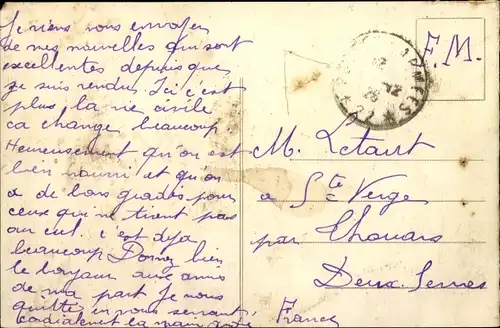 Je viens vous envoyer
de mes nouvelles qui sont
excellentes depuis que
je suis rendu. Ici c'est
plus la vie civile
ca change beaucoup.
Heureusement qu'on est
bien nourri et qu'on
a de bons gradés pour
ceux qui ne tirent pas
au cul. c'est deja
beaucoup. Donnez bien
le bonjour aux amis
de ma part Je vous
quitte en vous serrant
la main
F.M.
M. Letairt
a Ste Verge
par Thouars
Deux-Sevres
France